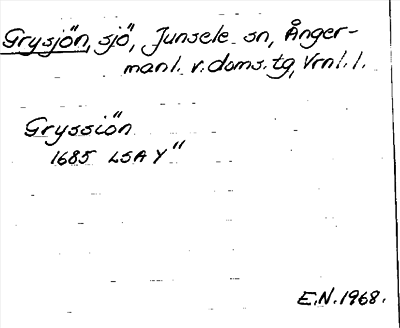 Grysjön, sjö, Junsele sn, Ånger-
manl. v. doms. tg, Vrnl. l.
Gryssiön
1685 LSA Y"
E.N. 1968.